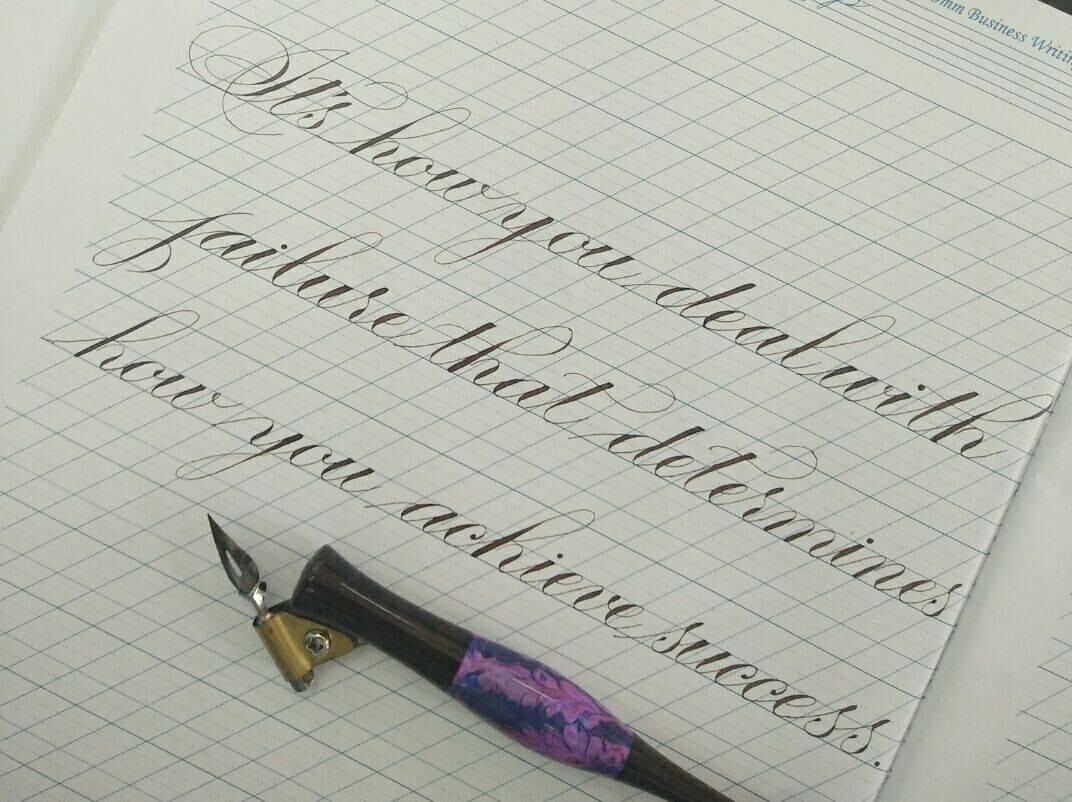 mm Business Writing
It's how you deal with
failure that determines
how you achieve success.